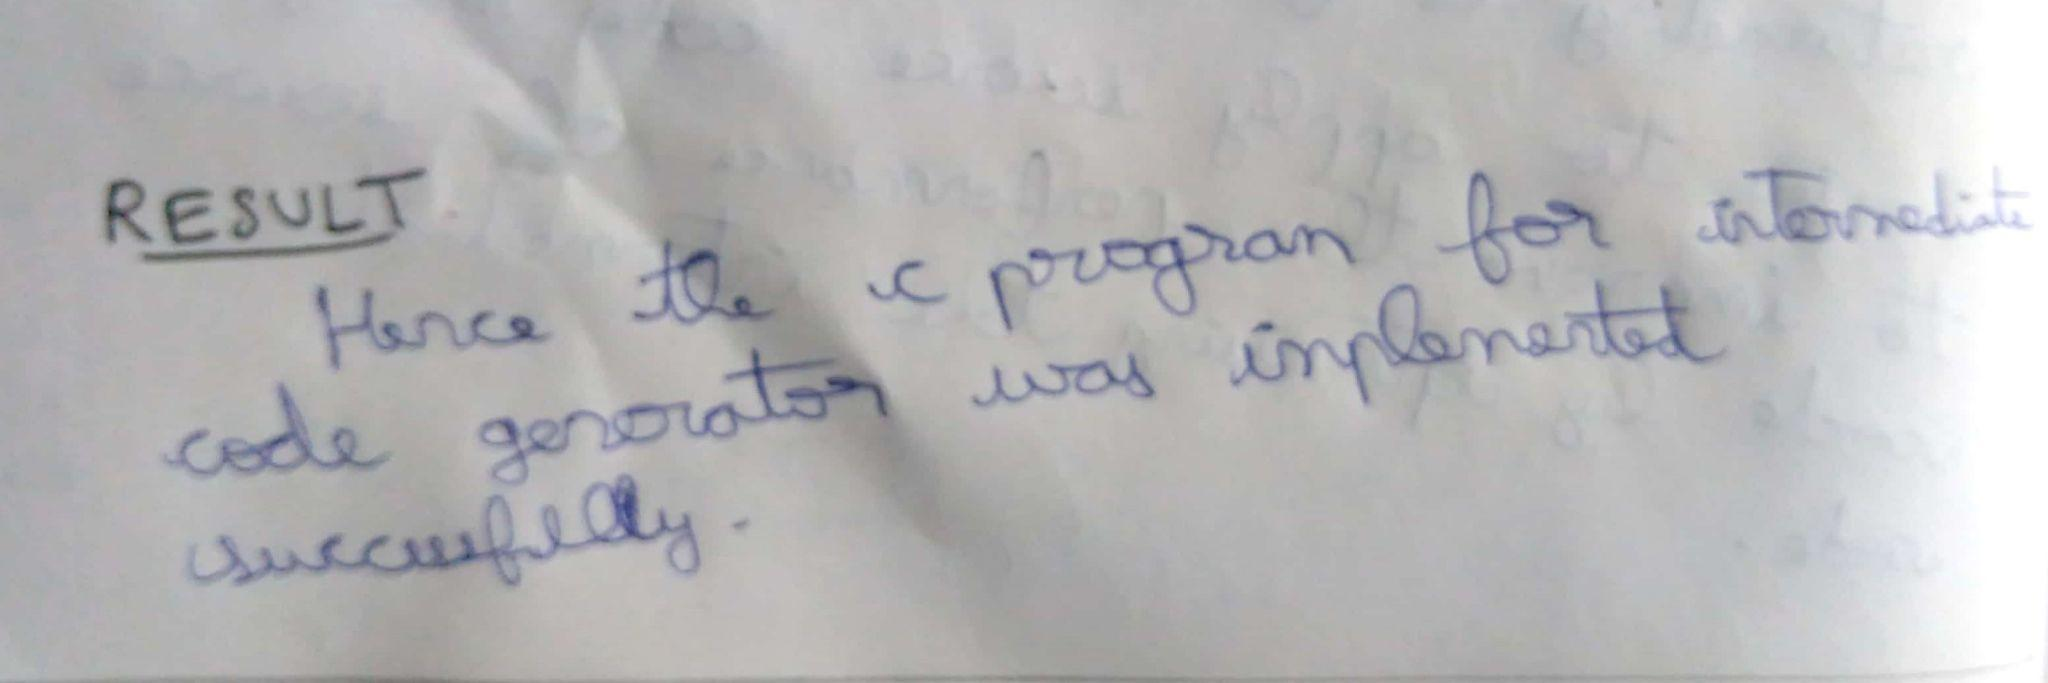 RESULT
Hence the c program for intermediate
code generator was implemented
successfully.